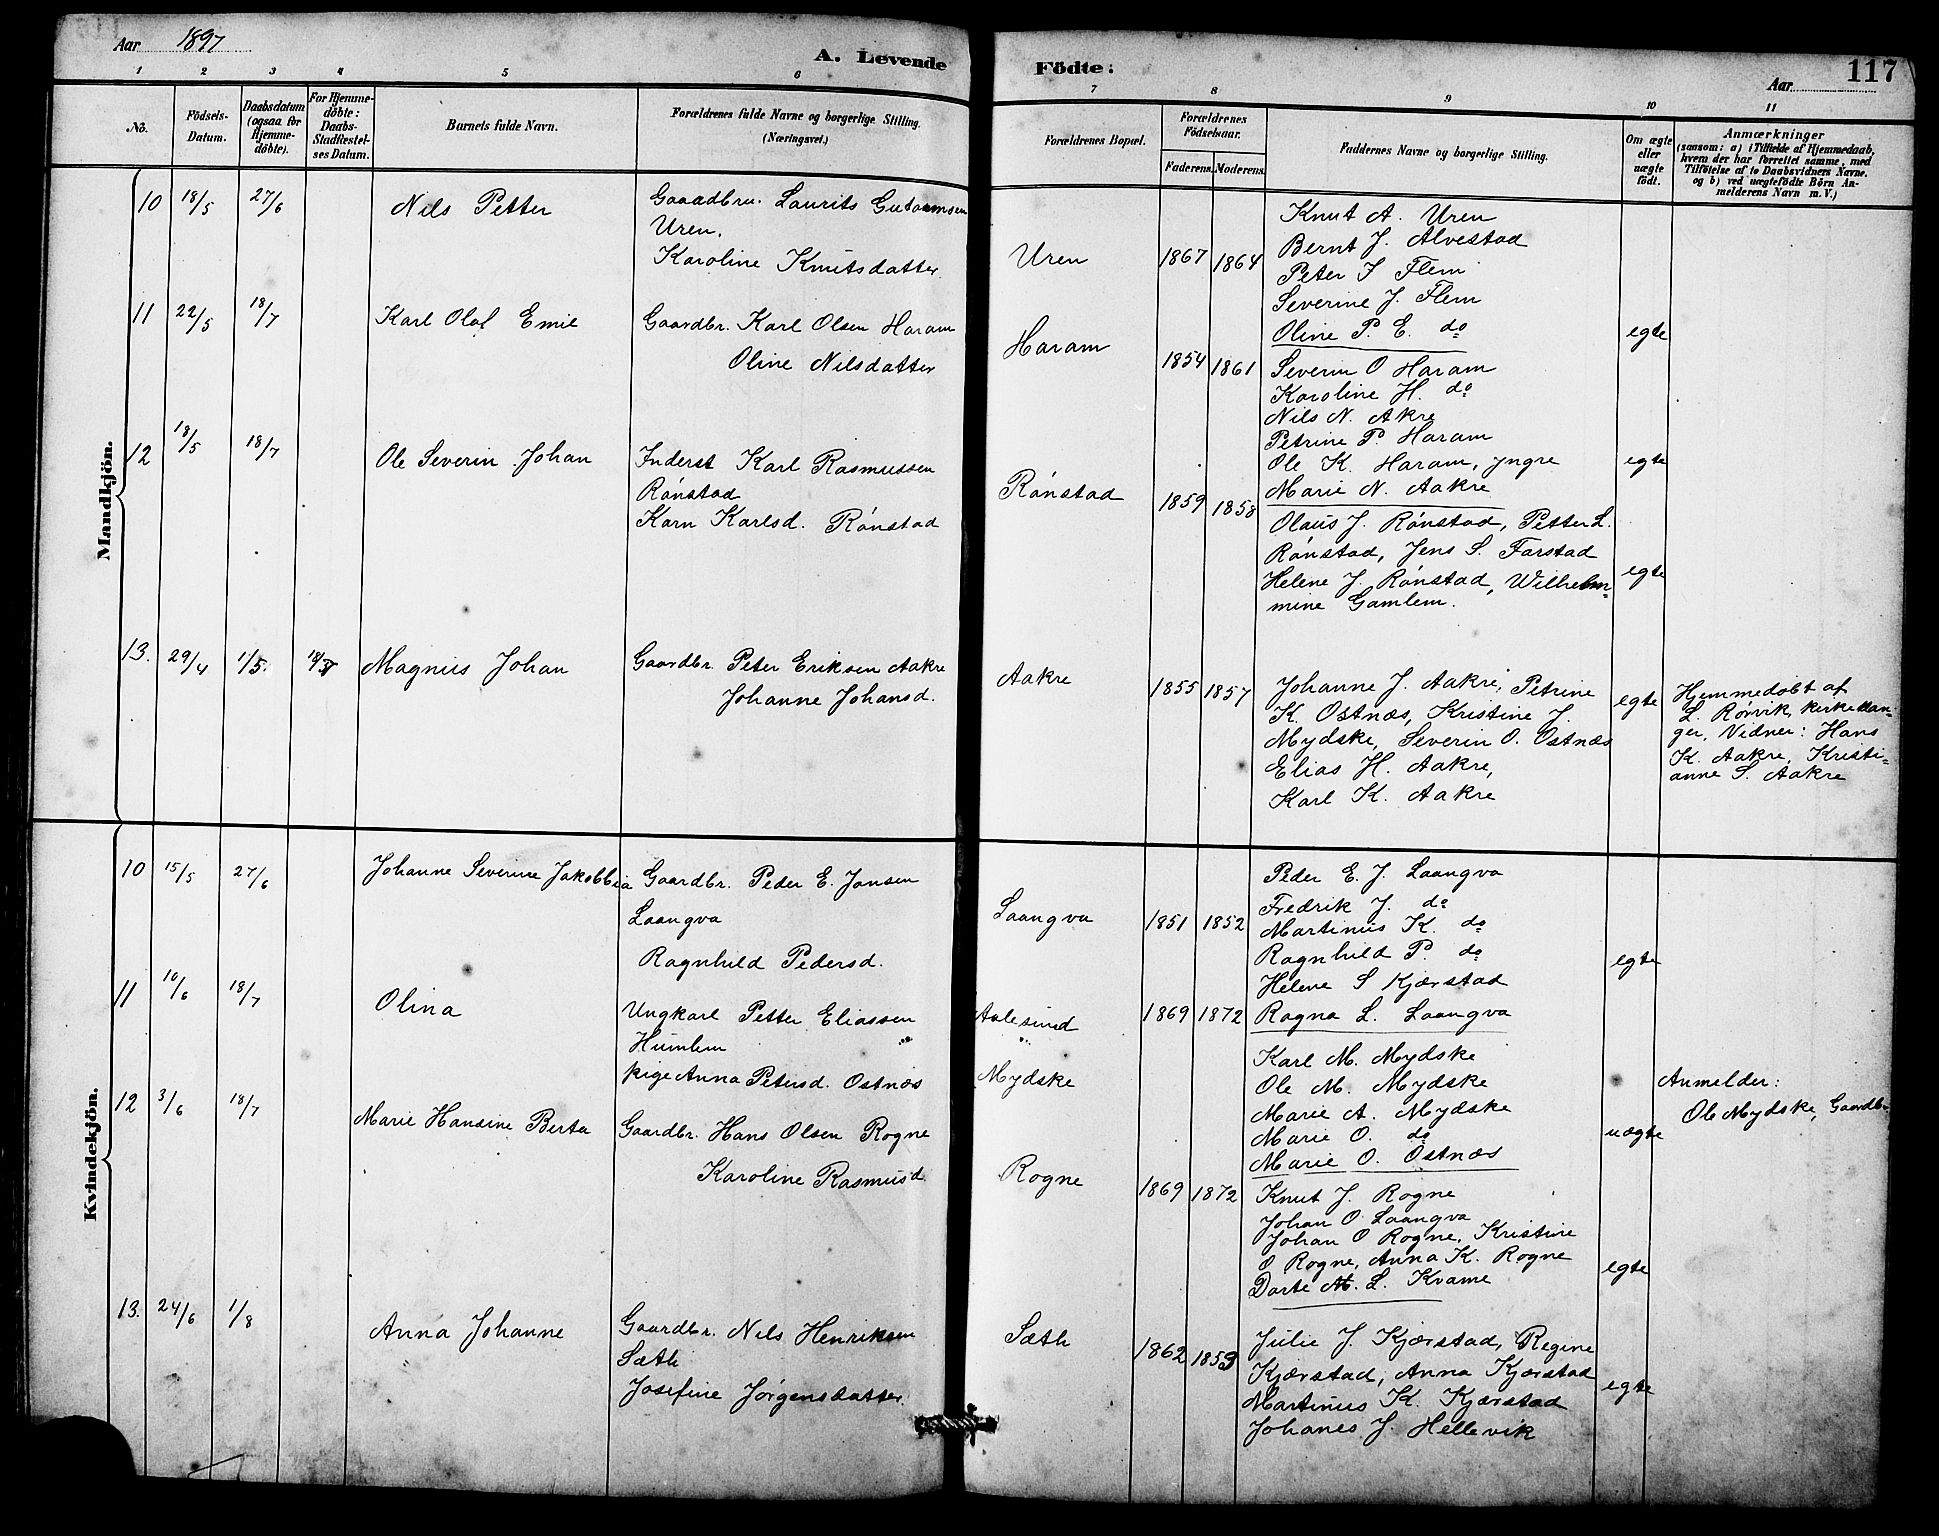 Aar 1897
A. Levende
1 2 3 4 5 6
No.
Födsels-
Datum.
Daabsdatum
(ogsaa for
Hjemme-
döbte).
For Hjemme-
döbte:
Daabs-
Stadfæstel-
ses Datum.
Barnets fulde Navn.
Forældrenes fulde Navne og borgerlige Stilling.
(Næringsvei.)
Mandkjön.
10 18/5 27/6 Nils Petter
Gaardbru. Laurits Guttormsen
Uren.
Karoline Knutsdatter
11 22/5 18/7 Karl Olaf Emil
Gaardbr. Karl Olsen Haram
Oline Nilsdatter
12 18/5 18/7 Ole Severin Johan
Inderst Karl Rasmussen
Rønstad
Karn Karlsd. Rønstad
13. 29/4 1/5. Magnus Johan
Gaardbr. Peter Eriksen Aakre
Johanne Johansd.
Kvindekjön.
10 15/5 27/6 Johanne Severine Jakobbia
Gaardbr. Peder E. Jansen
Laangva
Ragnhild Pedersd.
11 10/6 18/7 Olina
Ungkarl Petter Eliassen
Humlem
Pige Anna Petersd. Ostnæs
12 3/6 18/7 Marie Hansine Berta
Gaardbr. Hans Olsen Rogne
Karoline Rasmusd.
13. 24/6 1/8 Anna Johanne
Gaardbr. Nils Henriksen
Sæth
Josefine Jørgensdatter
Födte:
Aar
117
7 8 9 10 11
Forældrenes Bopæl.
Forældrenes
Födselsaar.
Faderens. Moderens.
Faddernes Navne og borgerlige Stilling.
Om ægte
eller
uægte
födt.
Anmærkninger
(saasom: a) i Tilfælde af Hjemmedaab,
hvem der har forrettet samme, med
Tilföielse af to Daabsvidners Navne.
og b) ved uægtefödte Börn An-
melderens Navn m.V.)
Uren 1867 1864
Knut A. Uren
Bernt J. Alvestad
Peter J Flem
Severine J. Flem
Oline P. E. do
egte
Haram 1854 1861
Severin O Haram
Karoline H. do
Nils N. Akre
Petrine P. Haram
Ole K. Haram, yngre
Marie N. Aakre
egte
Rønstad 1859 1858
Olaus J. Rønstad, Petter L.
Rønstad, Jens S. Farstad
Helene J. Rønstad, Wilhelm=
mine Gamlem.
egte
Aakre 1855 1857
Johanne J. Aakre, Petrine
K. Ostnæs, Kristine J.
Mydske, Severin O. Ostnæs
Elias H. Aakre,
Karl K. Aakre
egte
Hjemmedøbt af
L. Rørvik, kirkesan-
ger, Vidner: Hans
K. Aakre, Kristi=
anne S. Aakre
Laangva 1851 1852
Peder E. J. Laangva
Fredrik J. do
Martinus K. do
Ragnhild P. do
Helene S Kjærstad
Ragna L. Laangva
egte
Aalesund 1869 1872
Mydske
Karl M. Mydske
Ole M. Mydske
Marie A. Mydske
Marie O. do
Marie O. Ostnæs
uægte
Anmelder:
Ole Mydske, Gaardbr
Rogne 1869 1872
Knut J. Rogne
Johan O Laangva
Johan O Rogne, Kristine
O Rogne, Anna K. Rogne
Dorte M. L. Kvame
egte
Sæth 1862 1859
Julie J. Kjærstad, Regine
Kjærstad, Anna Kjærstad
Martinus K. Kjærstad
Johanes J. Hellevik
egte